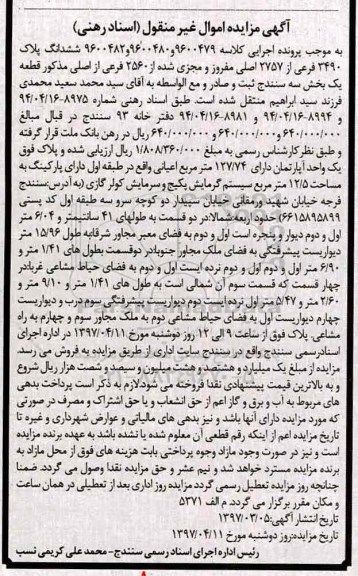 آگهی مزایده اموال غیر منقول (اسناد رهنی)
به موجب پرونده اجرایی کلاسه ۹۶۰۰۴۷۹و۹۶۰۰۴۸۰و۹۶۰۰۴۸۲ ششدانگ پلاک
۳۴۹۰ فرعی از ۲۷۵۷ اصلی مفروز و مجزی شده از۲۵۶۰ فرعی از اصلی مذکور قطعه
یک بخش سه سنندج ثبت و صادر و مع الواسطه به آقای سید محمد سعید محمدی
فرزند سید ابراهیم منتقل شده است. طبق اسناد رهنی شماره ۸۹۷۵-۹۴/۰۴/۱۶
و ۸۹۹۴-۹۴/۰۴/۱۶ و ۸۹۸۱-۹۴/۰۴/۱۶ دفتر خانه ۹۳ سنندج در قبال مبالغ
۶۴۰/۰۰۰/۰۰۰ و۶۴۰/۰۰۰/۰۰۰ و ۶۴۰/۰۰۰/۰۰۰ ریال در رهن بانک ملت قرار گرفته
و طبق نظر کارشناس رسمی به مبلغ ۱/۸۰۸/۳۶۰/۰۰۰ ریال ارزیابی شده و پلاک فوق
یک واحد آپارتمان دارای ۱۲۷/۷۴ متر مربع اعیانی واقع در طبقه اول دارای پارکینگ به
مساحت ۱۲/۵ متر مربع سیستم گرمایش پکیج و سرمایش کولر گازی (به آدرس:سنندج
فرجه خیابان شهید ورمقانی خیابان سپیدار دو کوچه سرو سه طبقه اول کد پستی
۶۶۱۵۸۹۵۸۹۹) حدود اربعه:شمالا:در دو قسمت به طولهای ۴۱ سانتیمتر و ۶/۰۴ متر
اول و دوم دیوار و پنجره است اول و دوم به فضای معبر مجاور شرقا:به طول ۱۵/۹۶ متر
دیواریست پیشرفتگی به فضای ملک مجاور جنوبا:در دوقسمت بطول های ۱/۴۱ متر و
۶/۹۰ متر اول و دوم اول و دوم نرده ایست اول و دوم به فضای حیاط مشاعی غربا:در
چهار قسمت که قسمت سوم آن شمالی است به طول های ۱/۴۱ متر و ۹/۱۰ متر و
۲/۶۰ متر و ۵/۴۷ متر اول نرده ایست دوم دیواریست پیشرفتگی سوم درب و دیواریست
چهارم دیواریست اول به فضای حیاط مشاعی دوم به ملک مجاور سوم و چهارم به راه پله
مشاعی. پلاک فوق از ساعت ۹ الی ۱۲ روز دوشنبه مورخ ۱۳۹۷/۰۴/۱۱ در اداره اجرای
اسنادرسمی سنندج واقع در سنندج سایت اداری از طریق مزایده به فروش می رسد.
مزایده از مبلغ یک میلیارد و هشتصد و هشت میلیون و سیصد و شصت هزار ریال شروع
و به بالاترین قیمت پیشنهادی نقدا فروخته می شود.لازم به ذکر است پرداخت بدهی
های مربوط به آب و برق و گاز اعم از حق انشعاب و یا حق اشتراک و مصرف در صورتی
که مورد مزایده دارای آنها باشد و نیز بدهی های مالیاتی و عوارض شهرداری و غیره تا
تاریخ مزایده اعم از اینکه رقم قطعی آن معلوم شده یا نشده باشد به عهده برنده مزایده
است و نیز در صورت وجود مازاد وجوه پرداختی بابت هزینه های فوق از محل مازاد به
برنده مزایده مسترد خواهد شد و نیم عشر و حق مزایده نقدا وصول می گردد. ضمنا
چنانچه روز مزایده تعطیل رسمی گردد مزایده روز اداری بعد از تعطیلی در همان ساعت
و مکان مقرر برگزار می گردد. م الف ۵۳۷۱
تاریخ انتشار آگهی:۱۳۹۷/۰۳/۰۵
تاریخ مزایده:روز دوشنبه مورخ ۱۳۹۷/۰۴/۱۱
رئیس اداره اجرای اسناد رسمی سنندج-محمد علی کریمی نسب